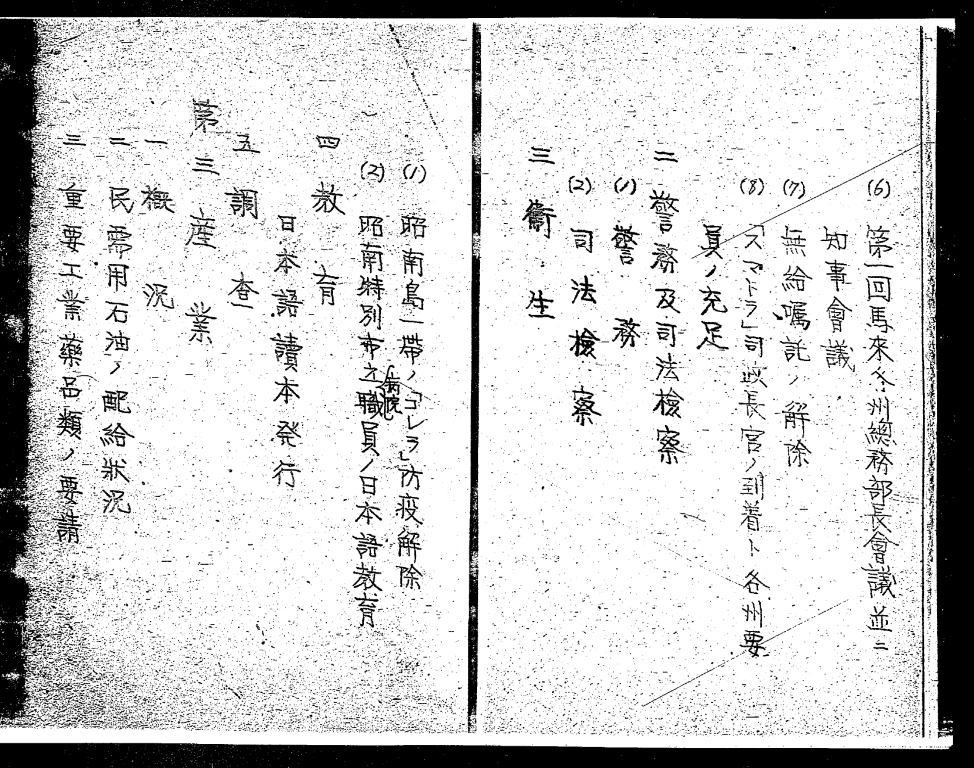 (6) 第一回馬來各州總務部長會議並ニ
知事會議
(7) 無給嘱託ノ解除
(8) 「スマトラ」司政長官ノ到着ト各州要
員ノ充足
二 警務及司法檢察
(1) 警務
(2) 司法檢察
三 衞生
(1) 昭南島一帶ノ「コレラ」防疫解除
(2) 昭南特別市立病院職員ノ日本語教育
四 教育
日本語讀本発行
五 調査
第三 産業
一 概況
二 民需用石油ノ配給狀況
三 重要工業藥品類ノ要請